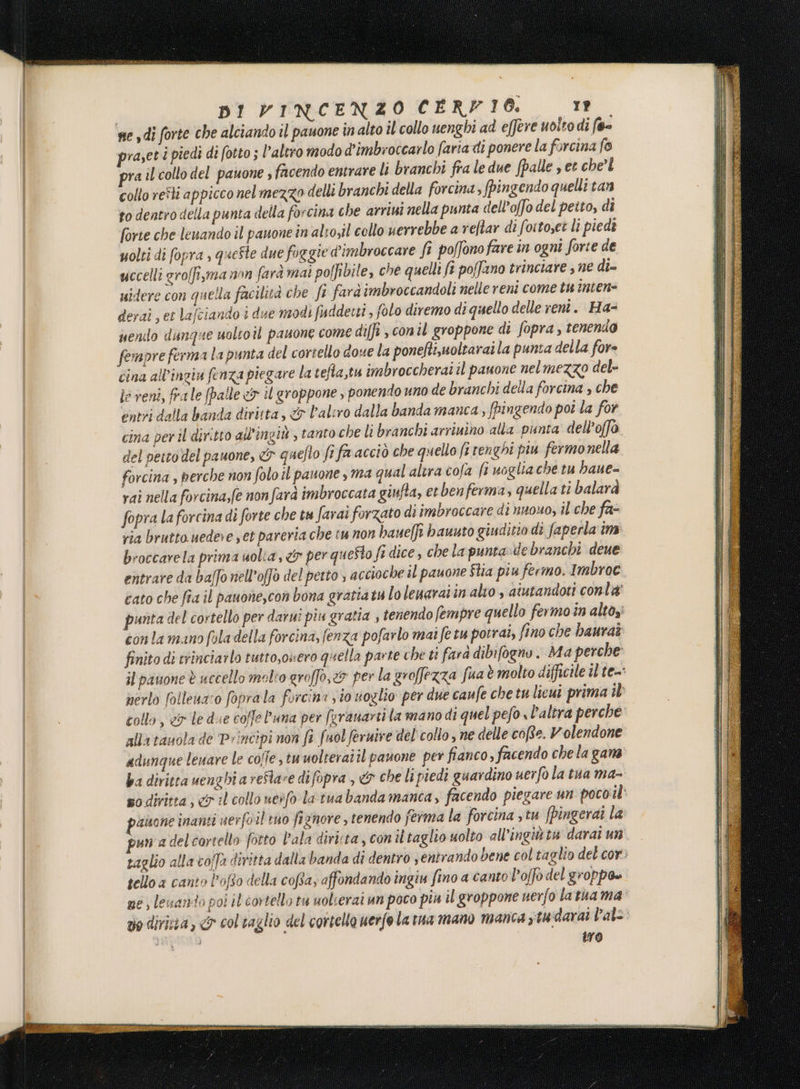 DI VINCENZO CERVIO. 19
ne, di ſorte che alciando il pauone in alto il collo uenghi ad eſſere uolto di ſo-
pra, et i piedi di ſotto; l'altro modo d'imbroccarlo ſaria di ponere la forcina ſo
pra il collo del pauone, facendo entrare li branchi fra le due ſpalle, et che'l
collo reſti appicco nel mezzo delli branchi della forcina, ſpingendo quelli tan
to dentro della punta della forcina che arriui nella punta dell'oſſo del petto, di
ſorte che leuando il pauone in alto, il collo uerrebbe a reſtar di ſotto, et li piedi
uolti di ſopra, queſte due foggie d'imbroccare ſi poſſono fare in ogni ſorte de
uccelli groſſi, ma non ſarà mai poſſibile, che quelli ſi poſſano trinciare, ne di-
uidere con quella facilità che ſi farà imbroccandoli nelle reni come tu inten-
derai, et laſciando i due modi ſuddetti, ſolo diremo di quello delle reni. Ha-
uendo dunque uolto il pauone come diſſi, con il groppone di ſopra, tenendo
ſempre ferma la punta del cortello doue la poneſti, uoltarai la punta della for-
cina all'ingiu ſenza piegare la teſta, tu imbroccherai il pauone nel mezzo del-
le reni, fra le ſpalle & il groppone, ponendo uno de branchi della forcina, che
entri dalla banda diritta, & l'altro dalla banda manca, ſpingendo poi la for
cina per il diritto all'ingiù, tanto che li branchi arriuino alla punta dell'oſſo
del petto del pauone, & queſto ſi fa acciò che quello ſi tenghi piu fermo nella
forcina, perche non ſolo il pauone, ma qual altra coſa ſi uoglia che tu haue-
rai nella forcina, ſe non ſarà imbroccata giuſta, et ben ferma, quella ti balarà
ſopra la forcina di ſorte che tu ſarai forzato di imbroccare di nuouo, il che fa-
ria brutto uedere, et pareria che tu non haueſſi hauuto giuditio di ſaperla im
broccare la prima uolta, & per queſto ſi dice, che la punta de branchi deue
entrare da baſſo nell'oſſo del petto, accioche il pauone ſtia piu fermo. Imbroc
cato che ſia il pauone, con bona gratia tu lo leuarai in alto, aiutandoti con la
punta del cortello per darui piu gratia, tenendo ſempre quello fermo in alto,
con la mano ſola della forcina, ſenza poſarlo mai ſe tu potrai, fino che haurai
finito di trinciarlo tutto, ouero quella parte che ti farà dibiſogno. Ma perche
il pauone è uccello molto groſſo, & per la groſſezza ſua è molto difficile il te-
nerlo ſolleuato ſopra la forcina, io uoglio per due cauſe che tu lieui prima il
collo, & le due coſſe l'una per ſgrauarti la mano di quel peſo, l'altra perche
alla tauola de Principi non ſi ſuol ſeruire del collo, ne delle coſſe. Volendone
adunque leuare le coſſe, tu uolterai il pauone per fianco, facendo che la gam
ba diritta uenghi a reſtare di ſopra, & che li piedi guardino uerſo la tua ma-
no diritta, & il collo uerſo la tua banda manca, facendo piegare un poco il
pauone inanti uerſo il tuo ſignore, tenendo ferma la forcina, tu ſpingerai la
punta del cortello ſotto l'ala diritta, con il taglio uolto all'ingiù tu darai un
taglio alla coſſa diritta dalla banda di dentro, entrando bene col taglio del cor
tello a canto l'oſſo della coſſa, affondando ingiu fino a canto l'oſſo del groppo-
ne, leuando poi il cortello tu uolterai un poco piu il groppone uerſo la tua ma
no diritta, & col taglio del cortello uerſo la tua mano manca, tu darai l'al-
tro